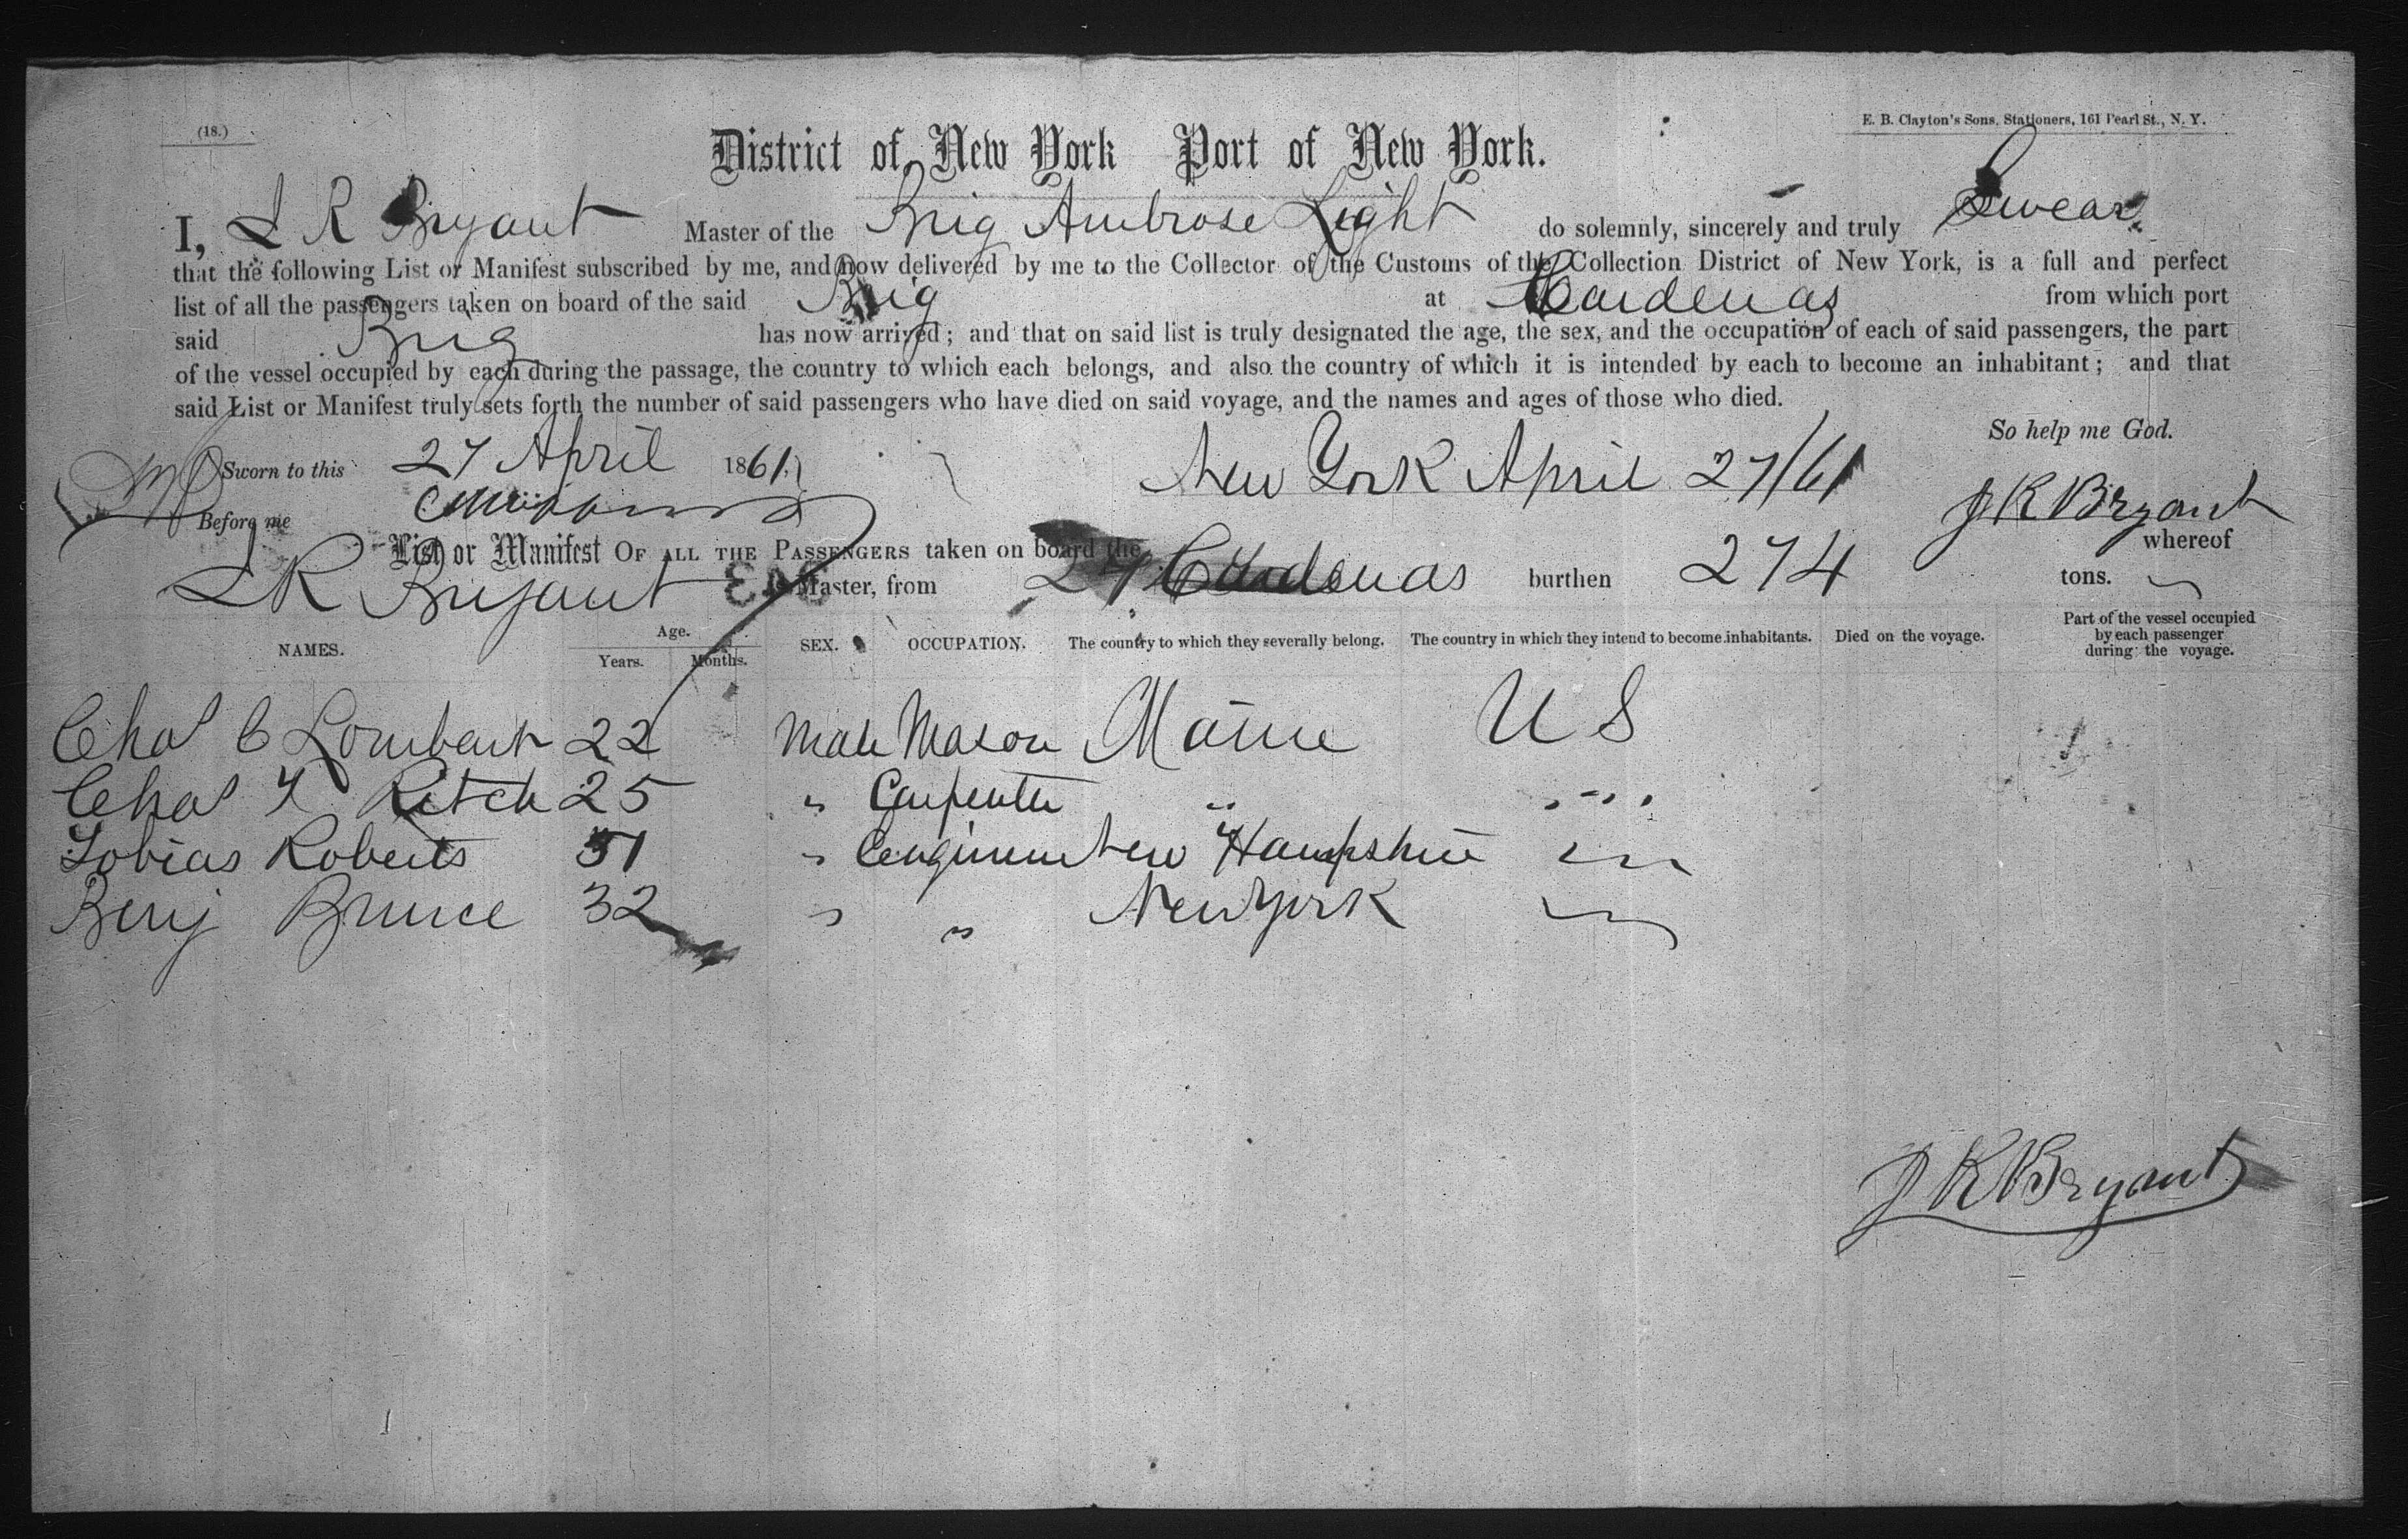 (18.)
E. B. Clayton's Sons, Stationers, 161 Pearl St., N. Y.
District of New York Port of New York.
I, J R Bryant Master of the Brig Ambrose Light do solemnly, sincerely and truly Swear
that the following List or Manifest subscribed by me, and now delivered by me to the Collector of the Customs of the Collection District of New York, is a full and perfect
list of all the passengers taken on board of the said Brig at Cardenas from which port
said Brig has now arrived; and that on said list is truly designated the age, the sex, and the occupation of each of said passengers, the part
of the vessel occupied by each during the passage, the country to which each belongs, and also the country of which it is intended by each to become an inhabitant; and that
said List or Manifest truly sets forth the number of said passengers who have died on said voyage, and the names and ages of those who died.
So help me God.
Sworn to this 27 April 1861 New York April 27/61
Before me J R Bryant
List or Manifest OF ALL THE PASSENGERS taken on board the whereof
J R Bryant Master, from Cardenas burthen 274 tons.
343
NAMES. Age. Years. Months. SEX. OCCUPATION. The country to which they severally belong. The country in which they intend to become inhabitants. Died on the voyage. Part of the vessel occupied by each passenger during the voyage.
Chas C Lombart 22 Male Mason Maine U S
Chas F Ritch 25 " Carpenter " " " "
Tobias Roberts 31 " Engineer New Hampshire " "
Benj Bruce 32 " " New York " "
J R Bryant